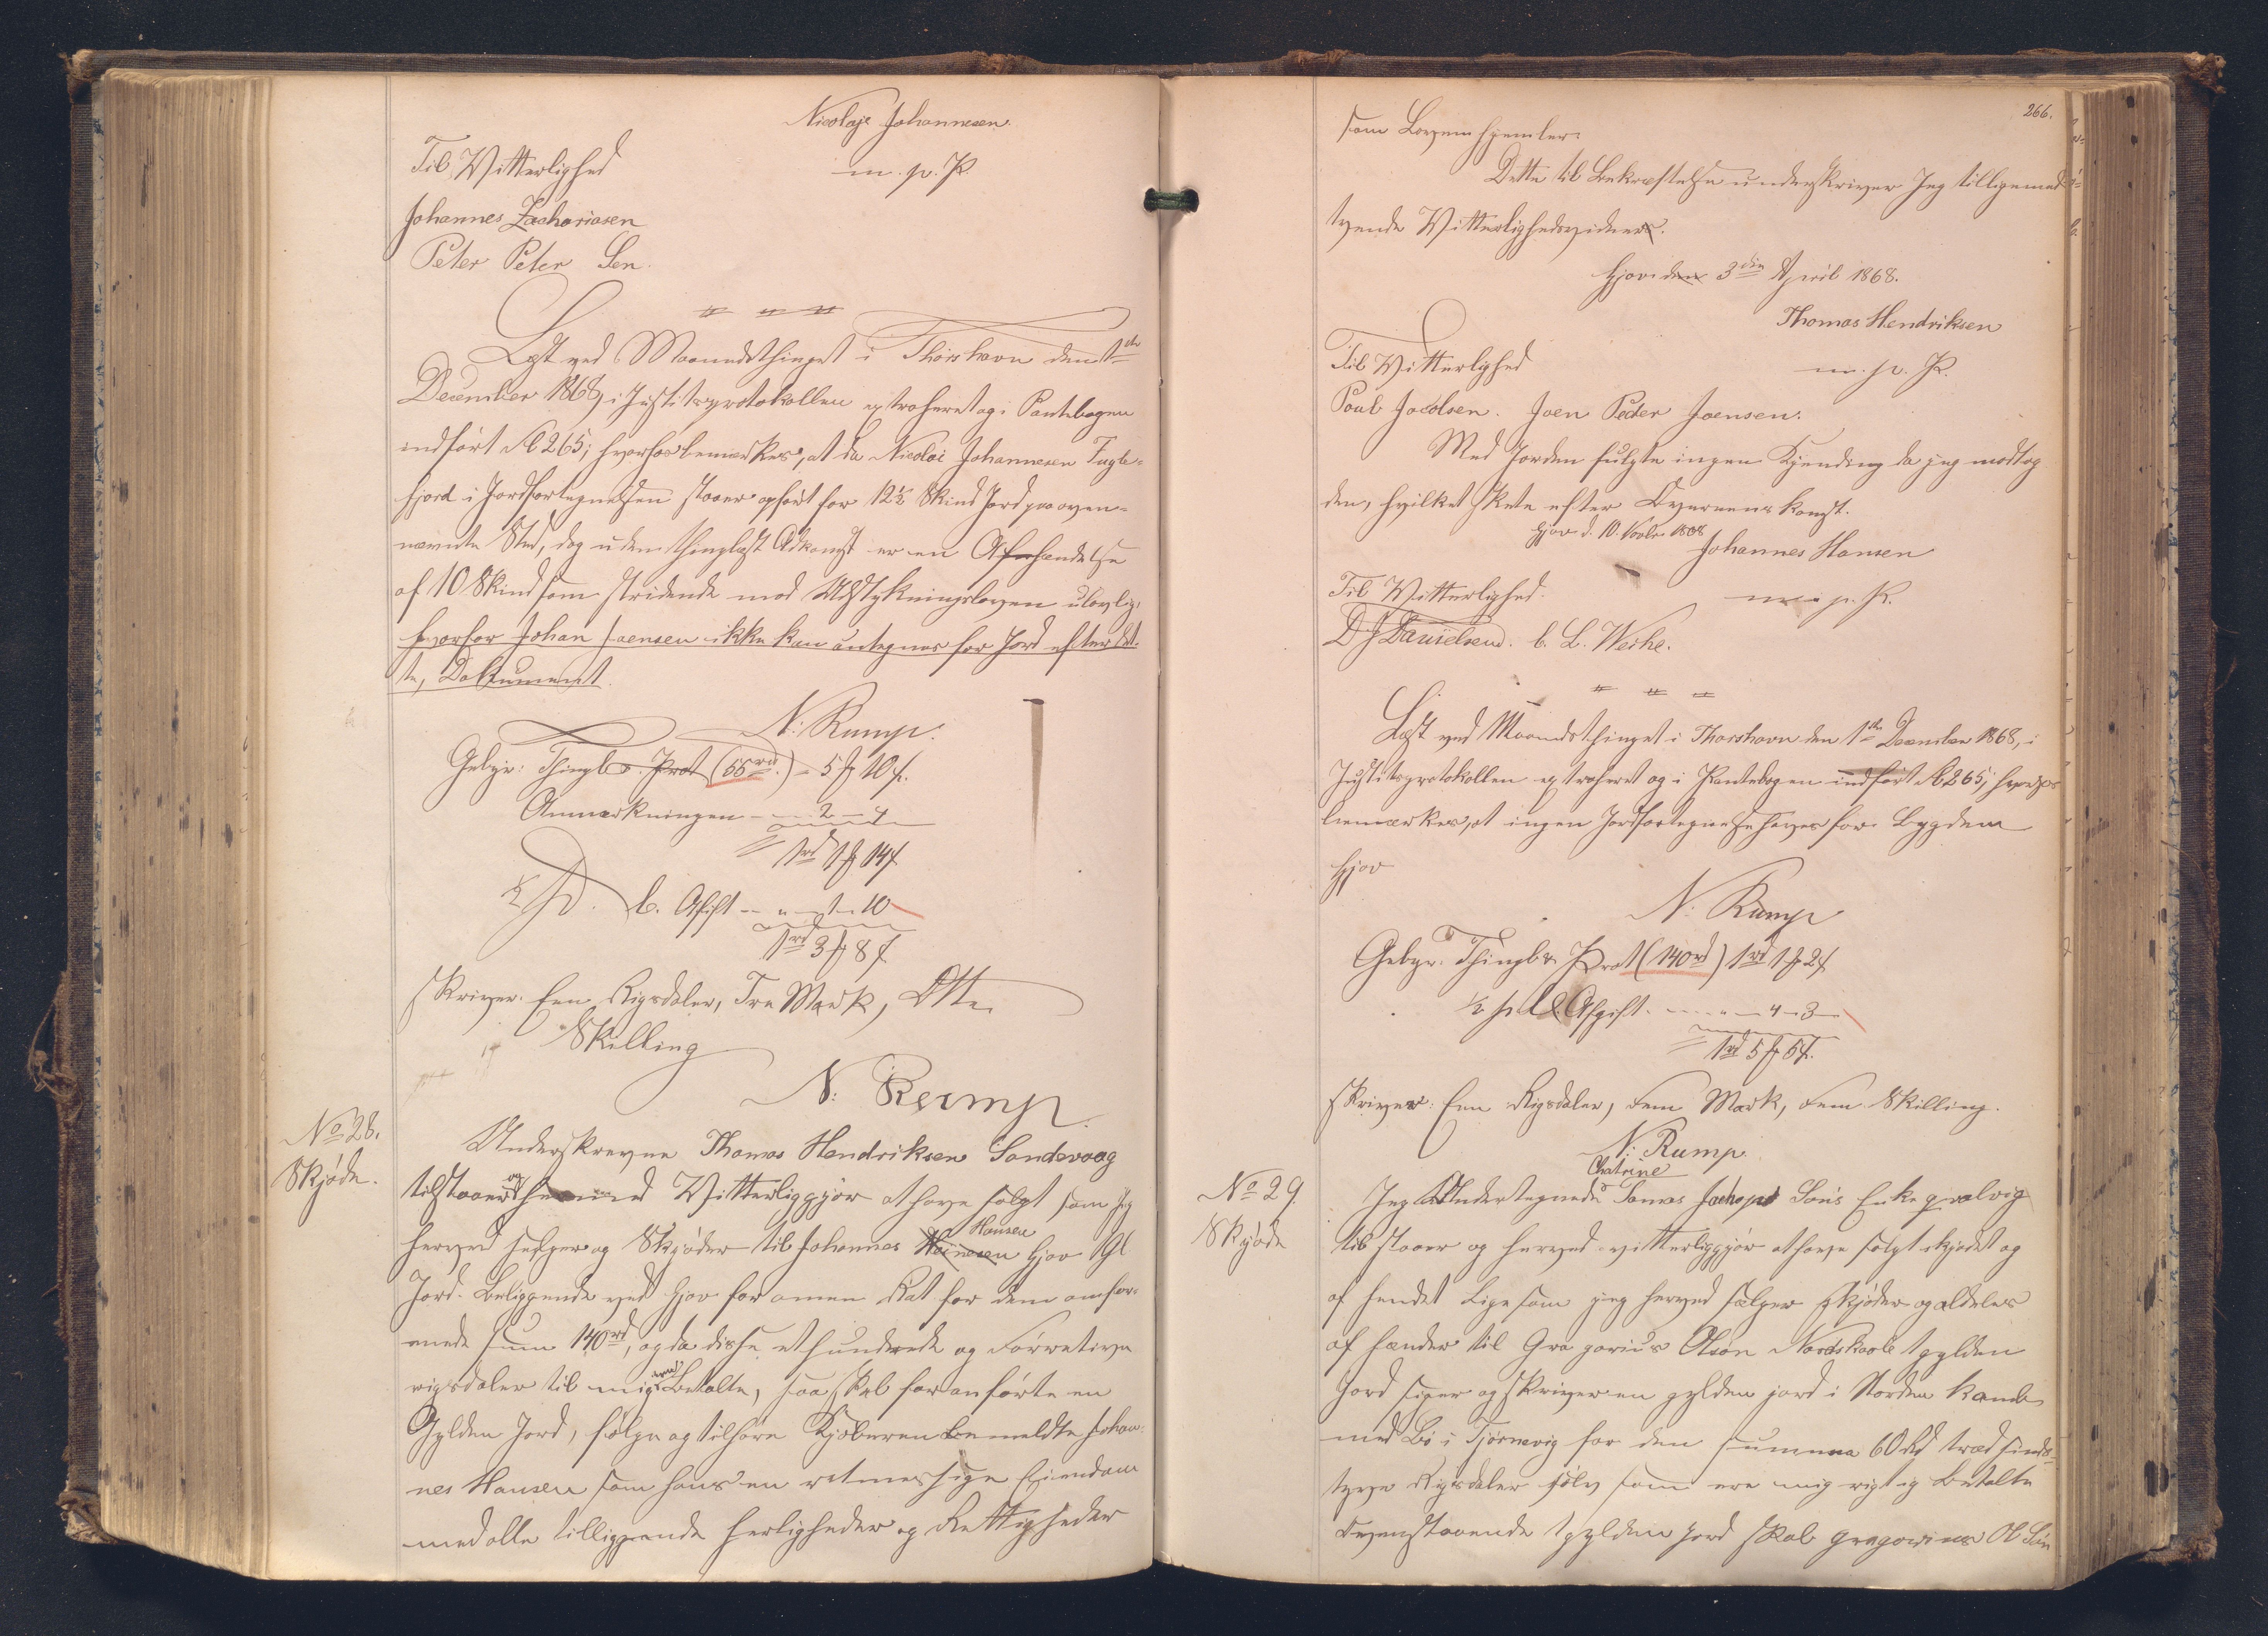 Nicolaje Johannesen.
Til Witterlighed m. p. P.
Johannes Zachariasen
Peter Peter Sen.
Læst ved Maanedsthinget i Thorshavn den 1ste
December 1868, i Justitsprotokollen extraheret og i Pantebogen
indført Fol 265; hvorhos bemærkes, at da Nicolai Johannesen Fugle-
fjord i Jordfortegnelsen staaer opført for 12½ Skind Jord paa oven-
nævnte Sted, dog uden thinglæst Adkomst er en Afhændelse
af 10 Skind som stridende mod Udstykningsloven ulovlig,
hvorfor Johan Joensen ikke kan antegnes for Jord efter det-
te, Dokument.
N. Rump.
Gebyr: Thingl. Prot (55rd.) - 5 ℳ 10 ẞ.
Anmærkningen - 2 - 4
1rd 1ℳ 14ẞ
½ p. C. Afgift - " - 1 - 10
1rd 3ℳ 8ẞ
skriver. Een Rigsdaler, Tre Mark, Otte
Skilling
N. Rump
No 28.
Skjøde.
Underskrevne Thomas Hendriksen Sandevaag
tilstaaer og hermed Witterliggjør at have solgt som Jeg
herved sælger og Skjøder til Johannes Heinesen Hansen Gjov 1 Gl
Jord. Beliggende ved Gjov for omen Kat for dem omfor-
enede Sum 140rd, og da disse et hundrede og Førretive
rigsdaler til mig ere Betalte, saa skal foranførte en
Gylden Jord, følge og tilhøre Kjøberen bemeldte Johan-
nes Hansen som hans en retmessige Eiendom
med alle tilliggende herligheder og Rettigheder
266.
som Loven hjemler.
Dette til Bekræftelse underskriver Jeg tilligemed
tvende Witterlighedsvidner.
Gjov den 3die April 1868.
Thomas Hendriksen
Til Witterlighed m. p. P.
Poul Jacobsen. Joen Peder Joensen.
Med Jorden fulgte ingen Kjending da jeg modtog
den, hvilket skete efter Overeenskomst.
Gjov d. 10. Novbr 1868
Johannes Hansen
Til Witterlighed. m. p. P.
D J Danielsen. C. L. Weihe.
Læst ved Maanedsthinget i Thorshavn den 1ste December 1868, i
Justitsprotokollen extraheret og i Pantebogen indført Fol 265; hvorhos
bemærkes, at ingen Jordfortegnelse haves for Bygden
Gjov
N. Rump
Gebyr. Thingl. Prot (140rd) 1rd 1ℳ 2ẞ
½ p. C. Afgift. " - 4 - 3
1rd 5ℳ 5ẞ.
skriver: Een Rigsdaler, Fem Mark, Fem Skilling.
N. Rump
No 29.
Skjøde
Jeg Undertegnede Chatrine Tomas Jachops Søns Enke qvalvig
til staaer og herved vitterliggjør at have solgt skjødet og
af hendet Lige som jeg herved sælger skjøder og aldeles
af hænder til Gra garius Olsøn Nordskaale 1 gylden
Jord siger og skriver en gylden jord i Norden kande
med Bø i Tjørnevig for den summa 60 rd træd sinds-
tyve Rigsdaler sølv som ere mig rigtig Betalte
Ovenstaaende 1 gylden Jord skal gregorius Ol Søn